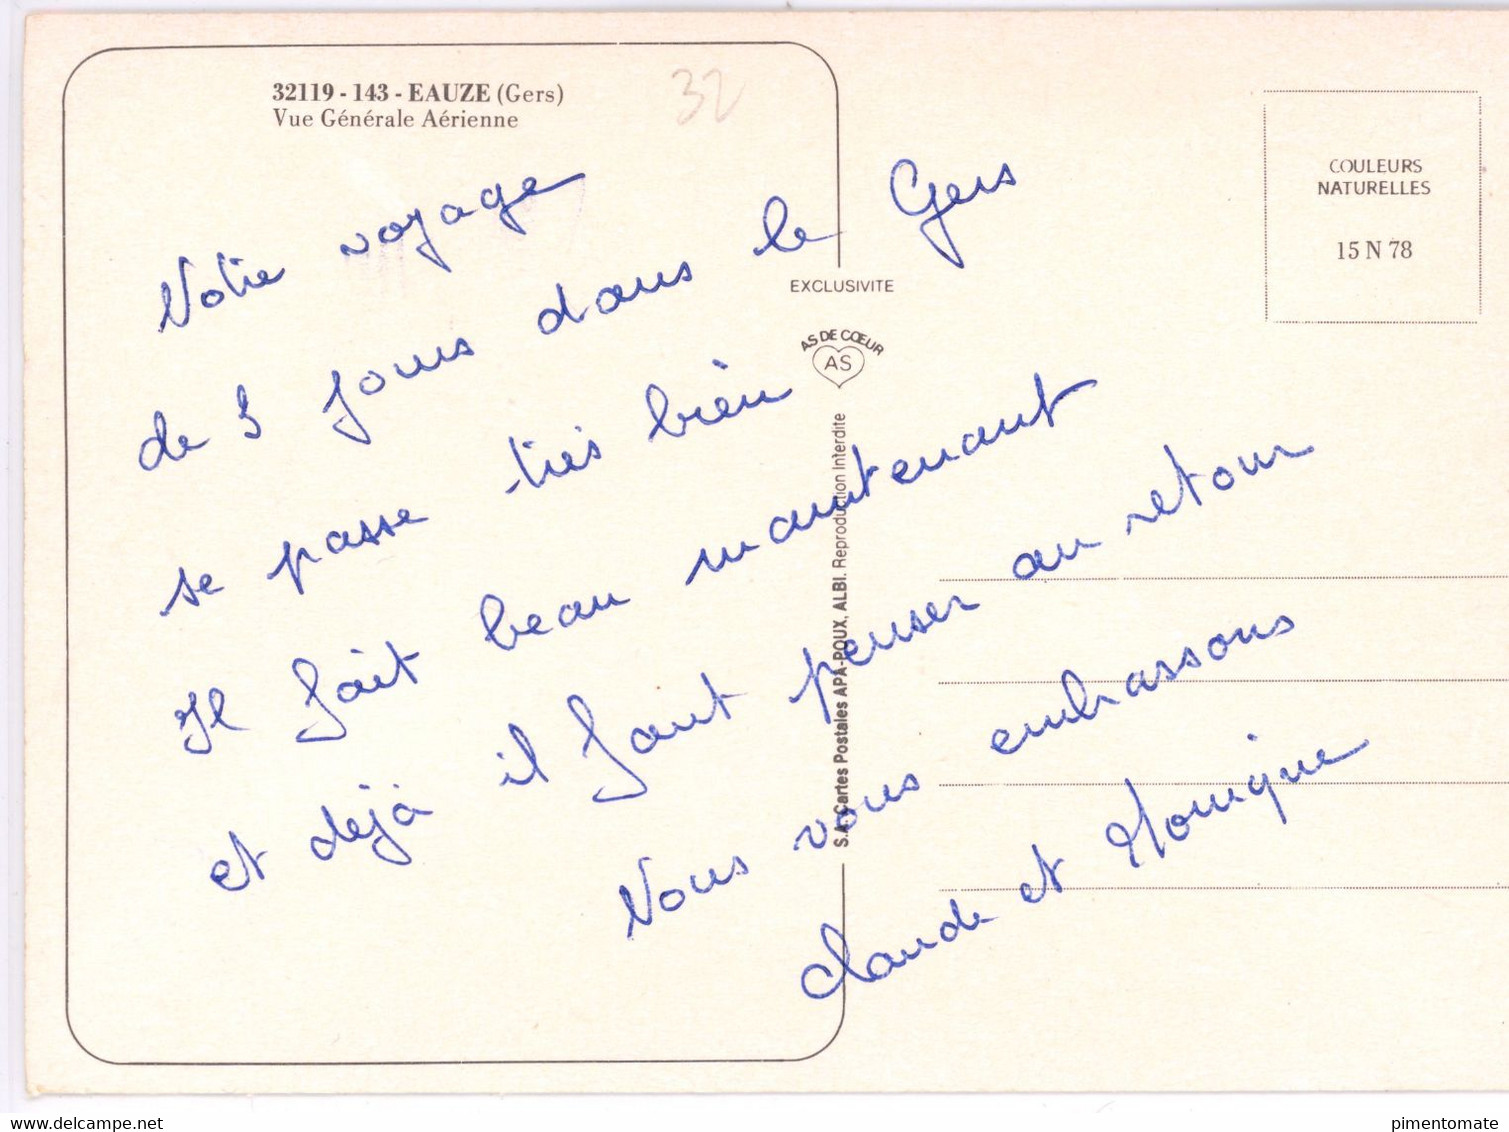 32119 - 143 - EAUZE (Gers)
Vue Générale Aérienne
32
COULEURS
NATURELLES
15 N 78
EXCLUSIVITE
AS DE CŒUR
AS
S.A. Cartes Postales APA-POUX, ALBI. Reproduction Interdite
Votre voyage
de 3 jours dans le Gers
se passe très bien
Il fait beau maintenant
et déjà il faut penser au retour
Nous vous embrassons
Claude et Monique
www.delcampe.net
pimentomate